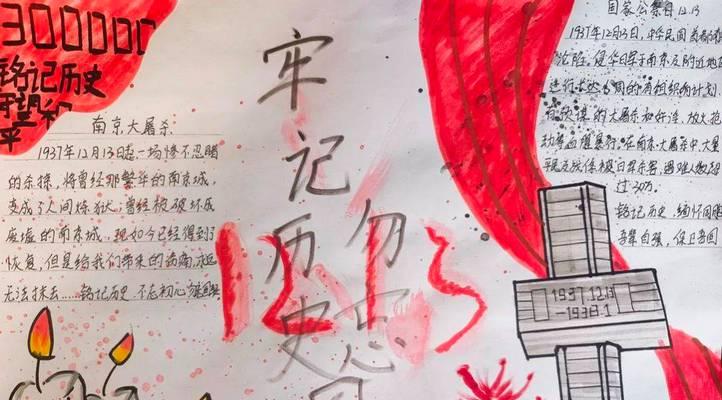 300000
铭记历史
守望和
平
南京大屠杀
1937年12月13日起一场惨不忍睹
的杀掠，将曾经那繁华的南京城，
变成了人间炼狱；曾经被破坏成
废墟的南京城，现如今已经得到了
恢复，但是给我们带来的伤痛，永远
无法抹去……铭记历史、不忘初心
牢记历史
勿忘国
12 13
国家公祭日12.13
1937年12月13日，中华民国首都南
沦陷。侵华日军于南京及附近地区
进行长达6周的有组织、有计划、
有预谋的大屠杀和奸淫、放火、抢
劫等血腥暴行。在南京大屠杀中，大量
平民及战俘被日军杀害，遇难人数超
过30万。
铭记历史，缅怀同胞
吾辈自强，保卫吾国
1937.12.13
-1938.1